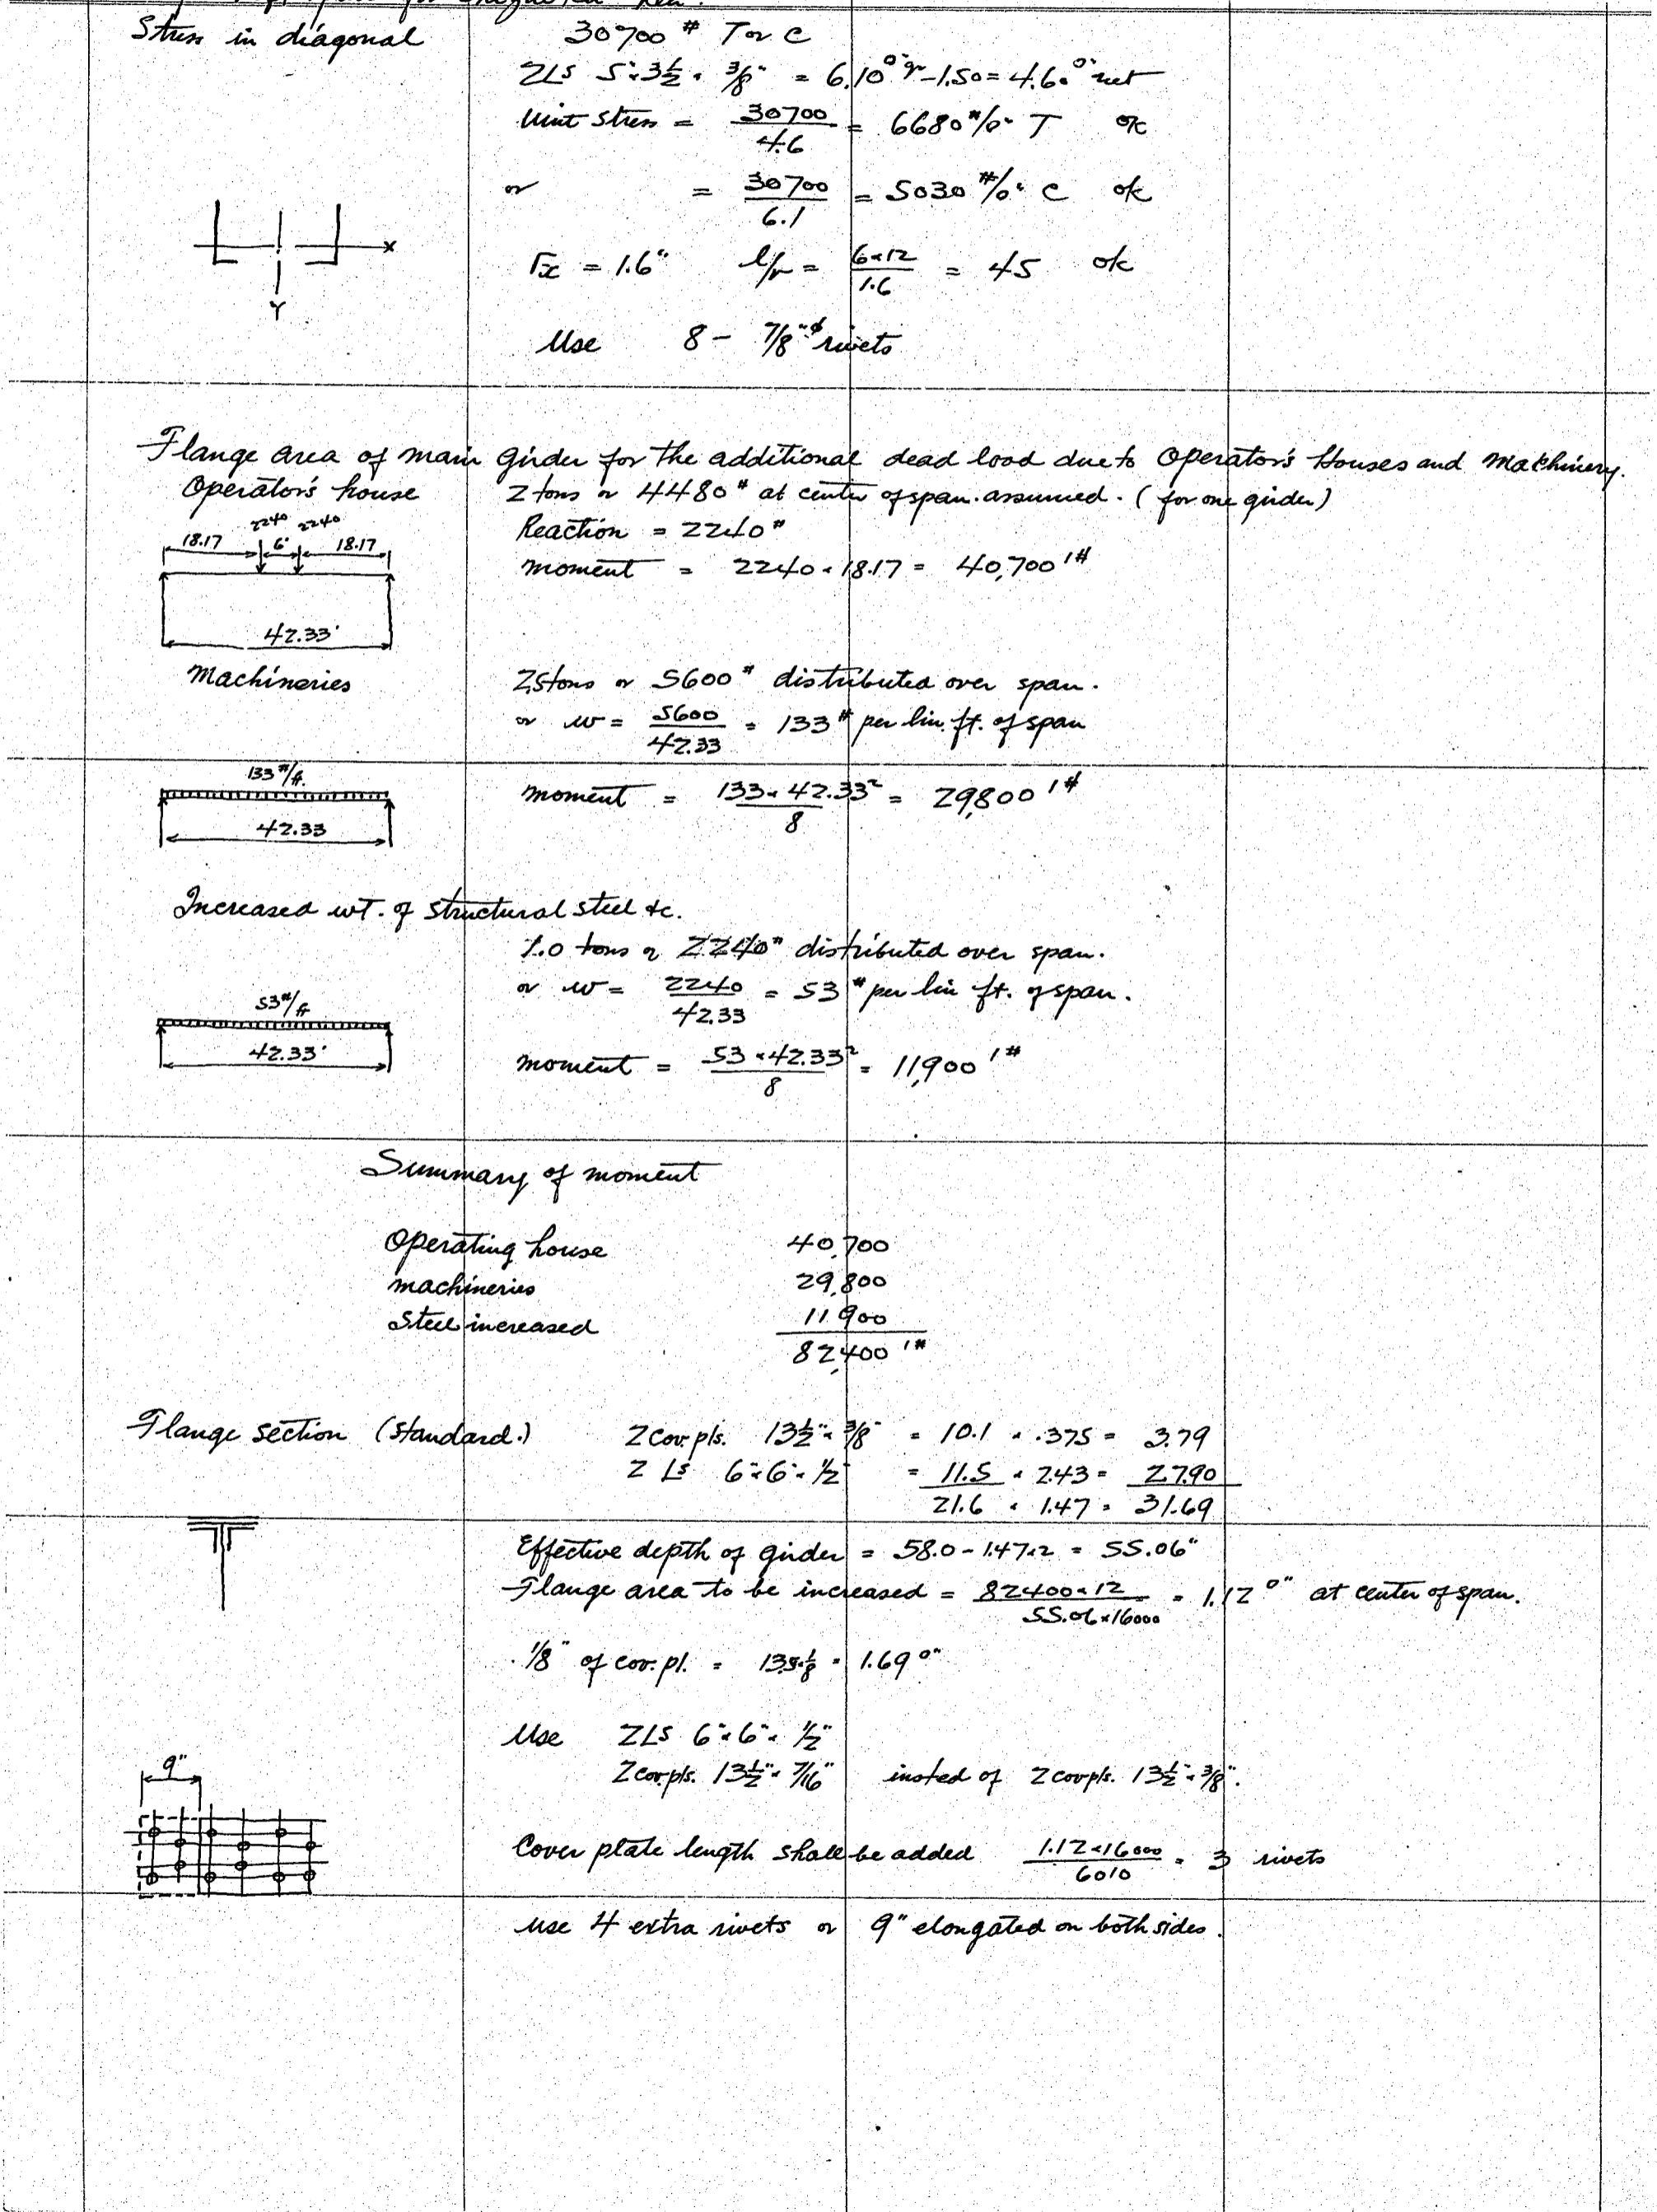 Stress in diagonal 30700 # T or C
2Ls 5"×3½"×3/8" = 6.10□" gr -1.50 = 4.60□" net
Unit stress = 30700/4.6 = 6680 #/□" T ok
or = 30700/6.1 = 5030 #/□" C ok
x
Y
rx = 1.6" l/r = 6×12/1.6 = 45 ok
Use 8 - 7/8"φ rivets
Flange area of main girder for the additional dead load due to Operator's Houses and Machinery.
Operator's house 2 tons or 4480# at center of span assumed. (for one girder)
2240 2240
18.17 6' 18.17
Reaction = 2240#
Moment = 2240 × 18.17 = 40,700 '#
42.33'
Machineries 2.5 tons or 5600# distributed over span.
or w = 5600/42.33 = 133# per lin. ft. of span
133 #/ft.
Moment = 133×42.33²/8 = 29,800 '#
42.33
Increased wt. of structural steel &c.
1.0 tons or 2240# distributed over span.
or w = 2240/42.33 = 53# per lin ft. of span.
53#/ft
42.33'
Moment = 53×42.33²/8 = 11,900 '#
Summary of moment
Operating house 40,700
Machineries 29,800
Steel increased 11,900
82,400 '#
Flange section (standard.) 2 cov. pls. 13½"×3/8" = 10.1 × .375 = 3.79
2 Ls 6"×6"×1/2 = 11.5 × 2.43 = 27.90
21.6 × 1.47 = 31.69
Effective depth of girder = 58.0 - 1.47×2 = 55.06"
Flange area to be increased = 82400×12/55.06×16000 = 1.12□" at center of span.
1/8" of cov. pl. = 13.5×1/8 = 1.69□"
Use 2Ls 6"×6"×½"
2 cov. pls. 13½"×7/16" insted of 2 cov pls. 13½"×3/8".
9"
Cover plate length shall be added 1.12×16000/6010 = 3 rivets
Use 4 extra rivets or 9" elongated on both sides.